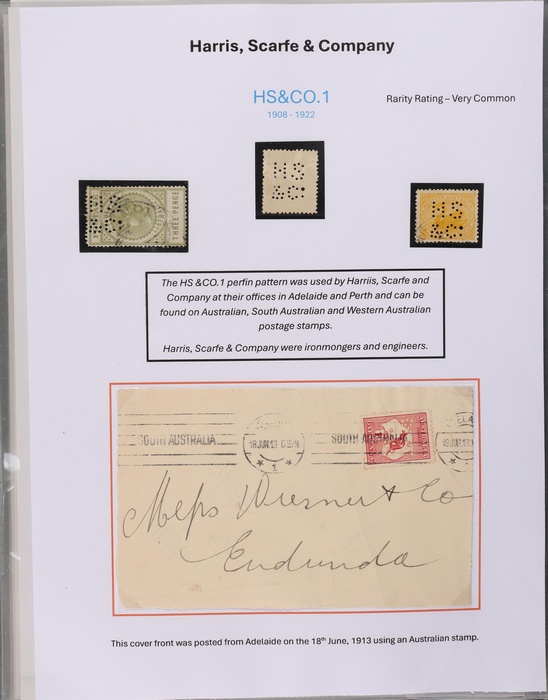 Harris, Scarfe & Company
HS&CO.1
Rarity Rating – Very Common
1908 - 1922
HS
&C.
HS
&C.
THREE PENCE
HS
&C.
The HS &CO.1 perfin pattern was used by Harriis, Scarfe and
Company at their offices in Adelaide and Perth and can be
found on Australian, South Australian and Western Australian
postage stamps.
Harris, Scarfe & Company were ironmongers and engineers.
SOUTH AUSTRALIA
18 JUN 13
1
SOUTH AUSTRALIA
Messrs Wiesner & Co
Eudunda
This cover front was posted from Adelaide on the 18th June, 1913 using an Australian stamp.